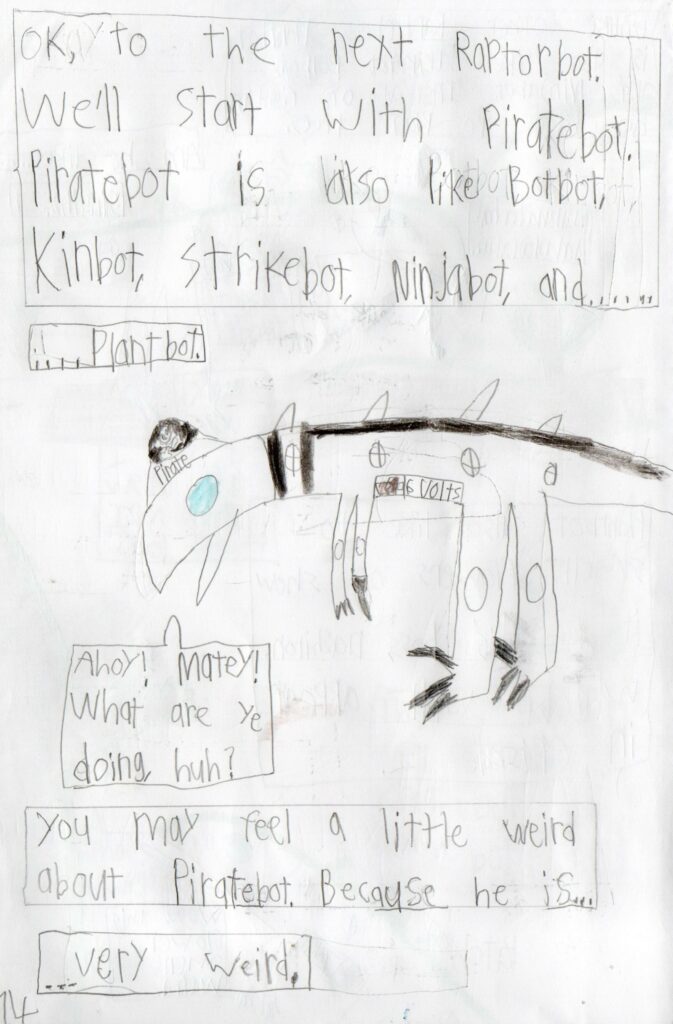 OK, to the next Raptorbot.
We'll start with Piratebot.
Piratebot is also like Botbot,
Kinbot, Strikebot, Ninjabot, and......
..... Plantbot.
Pirate
6 VOLTS
Ahoy! Matey!
What are ye
doing, huh?
You may feel a little weird
about Piratebot. Because he is...
...very weird.
14